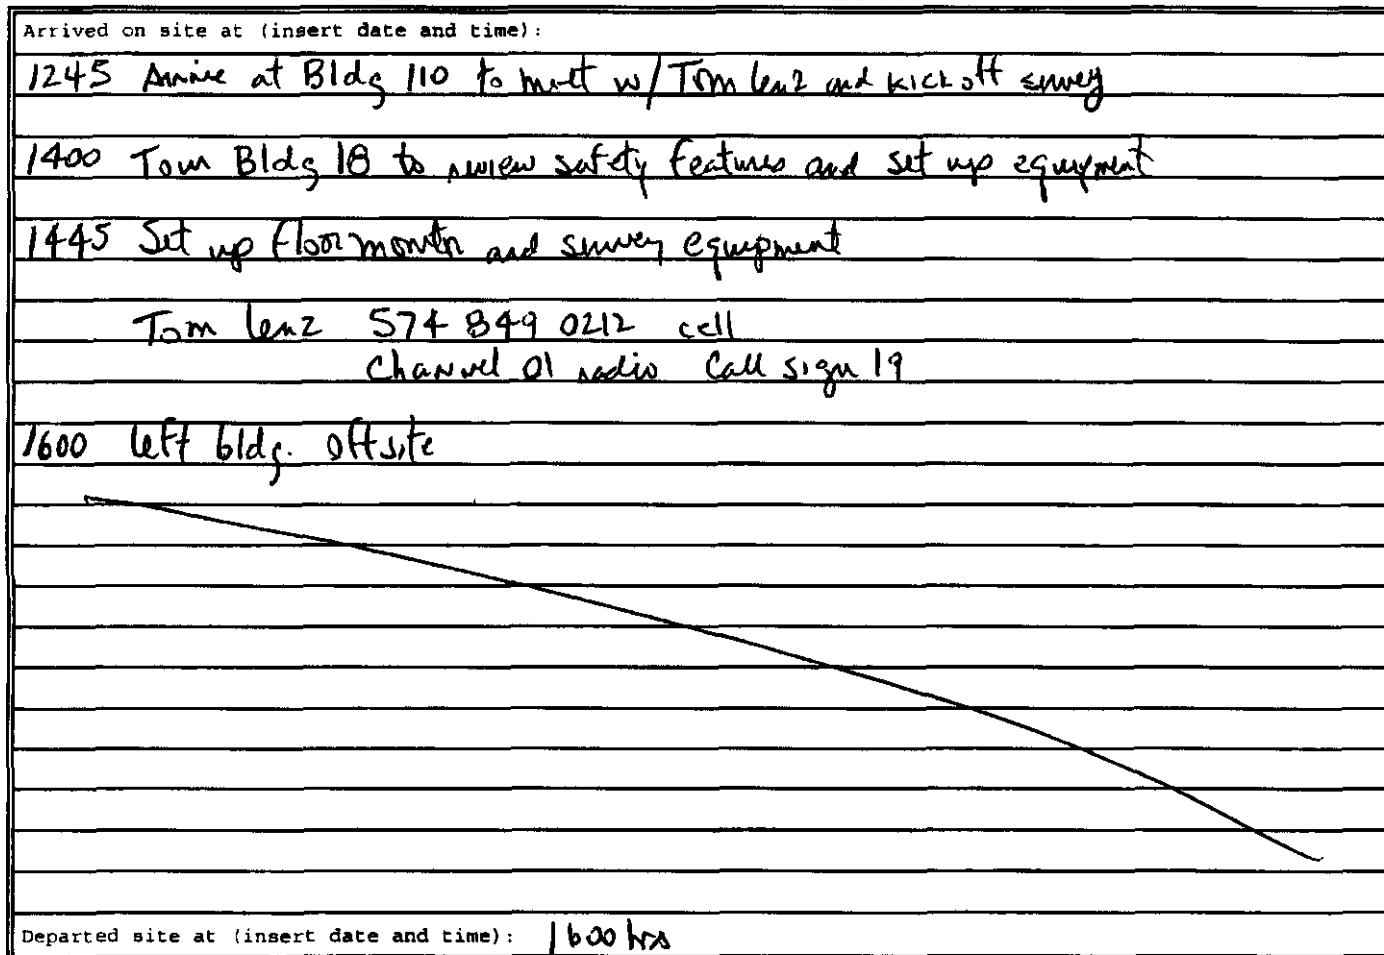 Arrived on site at (insert date and time):
1245 Arrive at Bldg 110 to meet w/ Tom Lenz and kick off survey
1400 Tour Bldg 18 to review safety features and set up equipment
1445 Set up floor monitor and survey equipment
Tom Lenz 574 849 0212 cell
Channel 01 radio Call sign 19
1600 left bldg. offsite
Departed site at (insert date and time): 1600 hrs